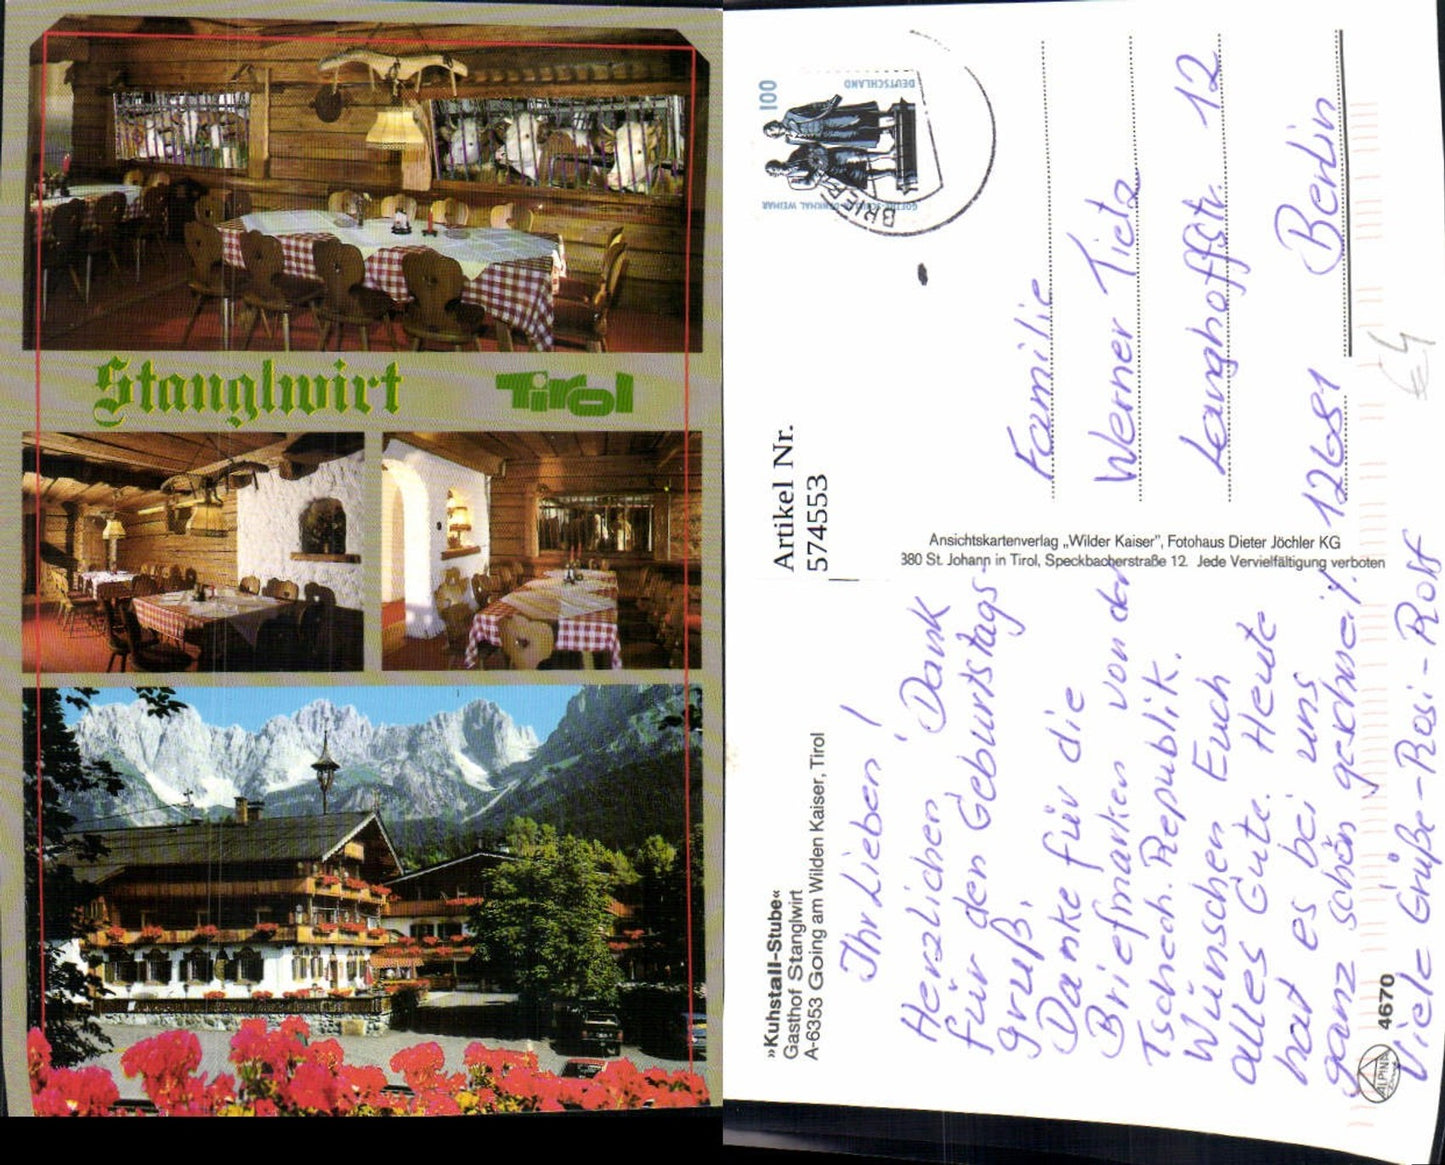 Stanglwirt
Tirol
»Kuhstall-Stube«
Gasthof Stanglwirt
A-6353 Going am Wilden Kaiser, Tirol
Ihr Lieben!
Herzlichen Dank
für den Geburtstags-
gruß,
Danke für die
Briefmarken von der
Tschech. Republik.
Wünschen Euch
alles Gute. Heute
hat es bei uns
ganz schön geschneit.
Viele Grüße - Rosi - Rolf
4670
ALPINA
Artikel Nr.
574553
Ansichtskartenverlag „Wilder Kaiser”, Fotohaus Dieter Jöchler KG
380 St. Johann in Tirol, Speckbacherstraße 12. Jede Vervielfältigung verboten
100
DEUTSCHLAND
GOETHE-SCHILLER-DENKMAL WEIMAR
BRIEF
Familie
Werner Tietz
Langhoffstr. 12
12681 Berlin
€4